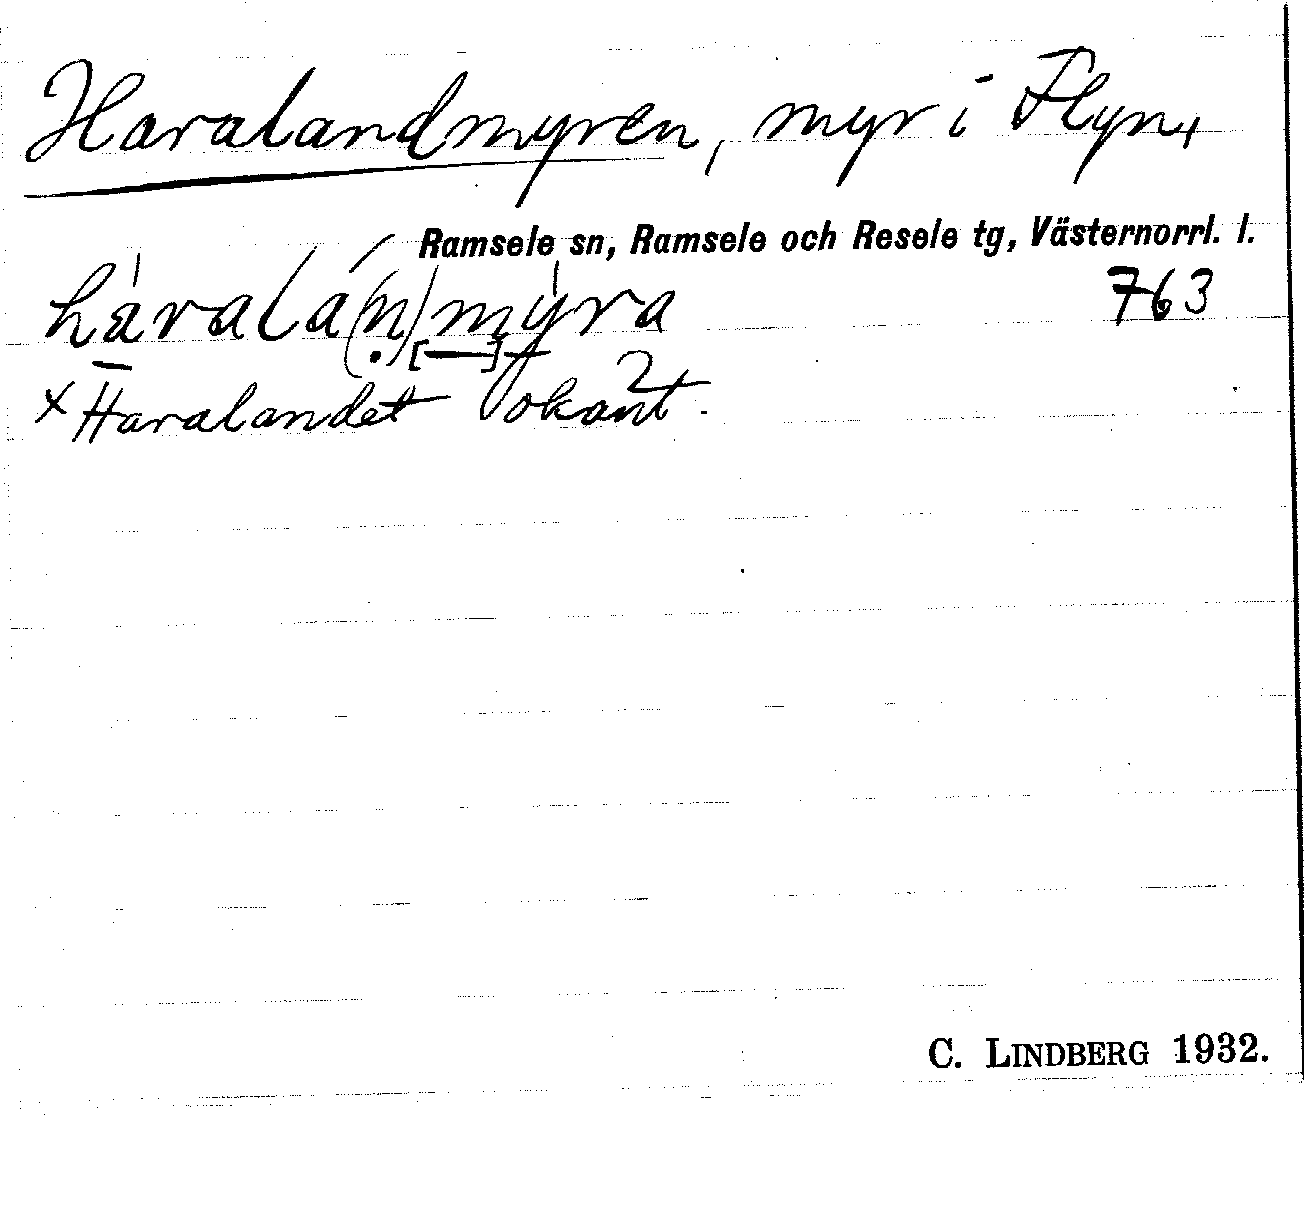 Haralandmyren, myr i Flyn,
Ramsele sn, Ramsele och Resele tg, Västernorrl. l.
hàralá(n)mỳra 763
× Haralandet okänt.
C. LINDBERG 1932.